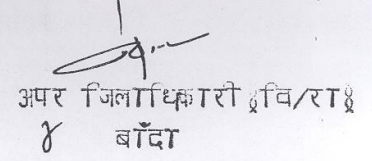 अपर जिलाधिकारी (वि/रा)
बाँदा